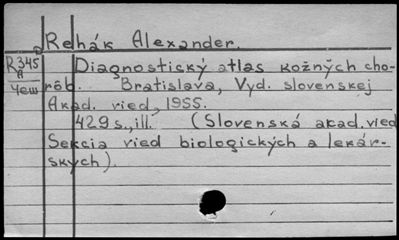 Rehák Alexander.
R345
A
Чеш
Diagnostický atlas kožných cho-
rôb. Bratislava, Vyd. slovenskej
Akad. vied, 1955.
429 s., ill. (Slovenská akad. vied
Sekcia vied biologických a lekár-
skych).